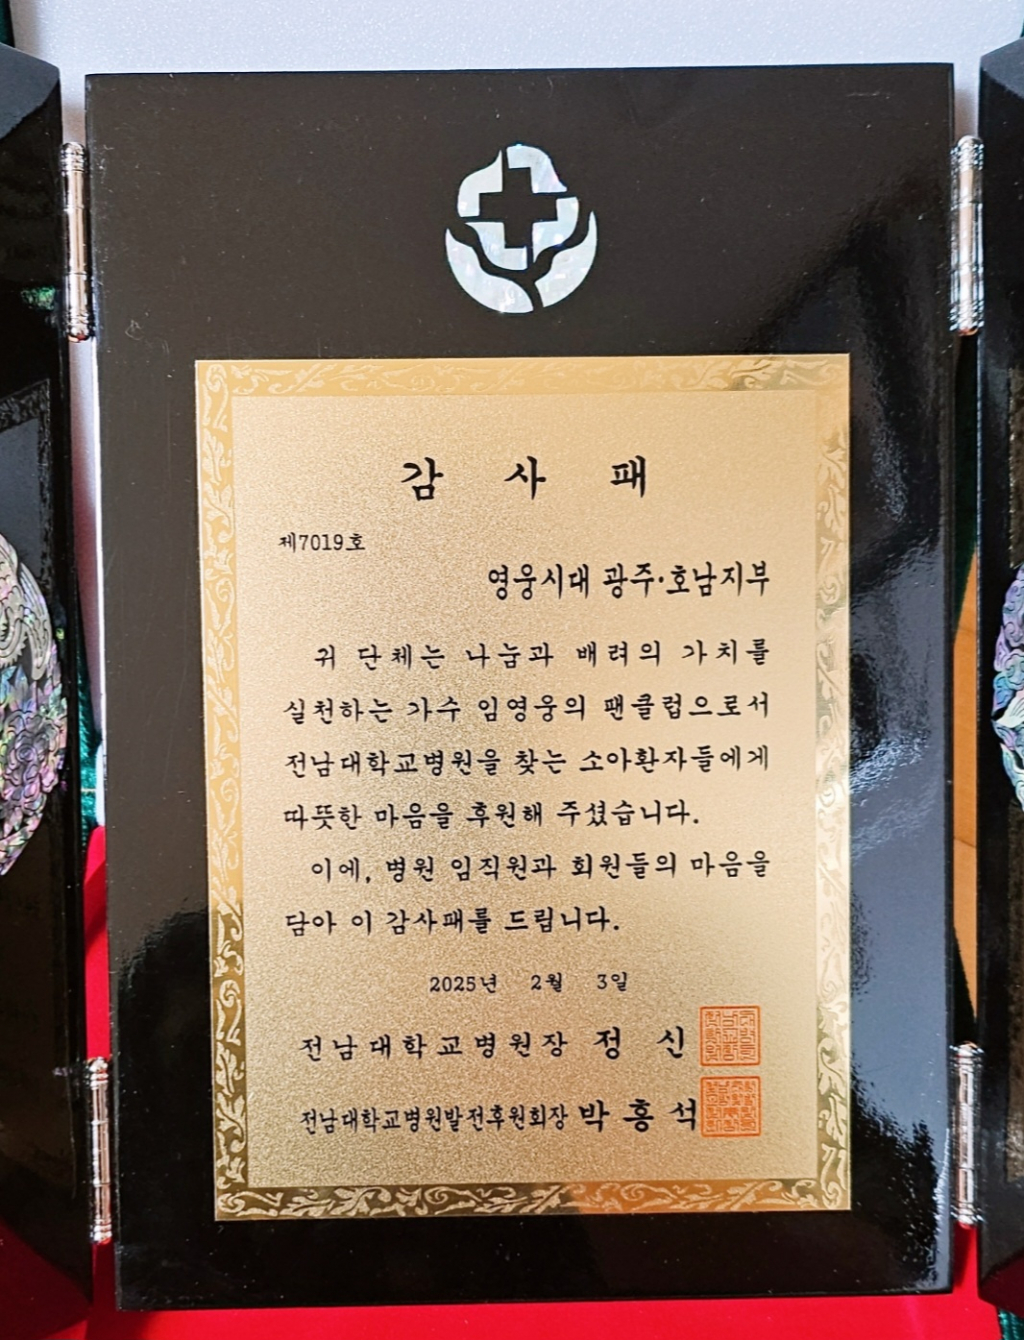 감 사 패
제7019호
영웅시대 광주·호남지부
귀 단체는 나눔과 배려의 가치를
실천하는 가수 임영웅의 팬클럽으로서
전남대학교병원을 찾는 소아환자들에게
따뜻한 마음을 후원해 주셨습니다.
이에, 병원 임직원과 회원들의 마음을
담아 이 감사패를 드립니다.
2025년 2월 3일
전남대학교병원장 정 신
전남대학교병원발전후원회장 박 흥 석